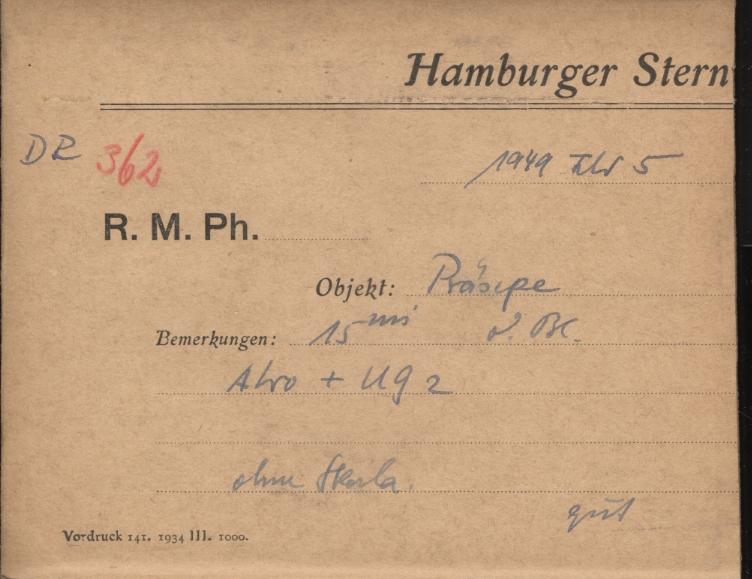 Hamburger Stern
DR 362
1949 Febr 5
R. M. Ph.
Objekt: Präsepe
Bemerkungen: 15 min
+ UG 2
ohne Skala.
gut
Vordruck 141. 1934 III. 1000.